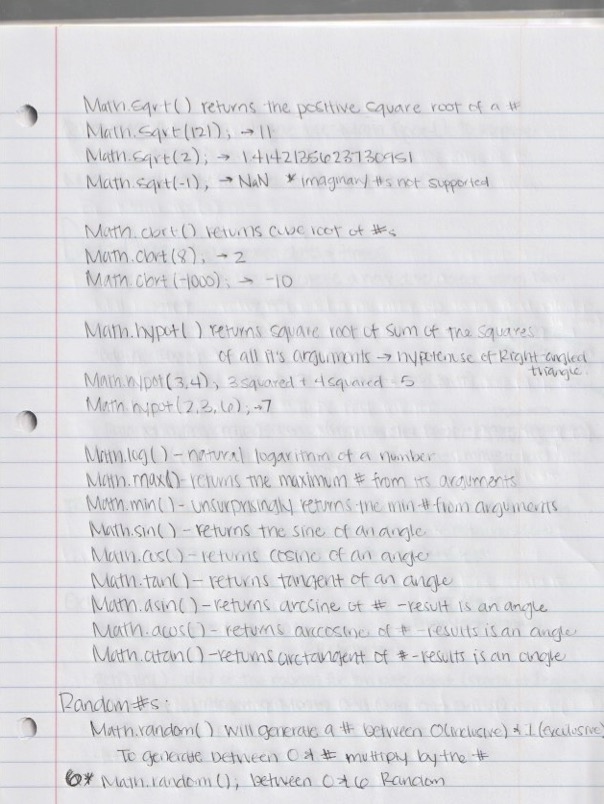 Math.sqrt() returns the positive square root of a #
Math.sqrt(121); → 11
Math.sqrt(2); → 1.4142135623730951
Math.sqrt(-1); → NaN * imaginary #s not supported
Math.cbrt() returns cube root of #s
Math.cbrt(8); → 2
Math.cbrt(-1000); → -10
Math.hypot() returns square root of sum of the squares
of all it's arguments → hypotenuse of Right-angled
triangle.
Math.hypot(3,4); 3 squared + 4 squared = 5
Math.hypot(2,3,6); → 7
Math.log() - natural logarithm of a number
Math.max() - returns the maximum # from its arguments
Math.min() - unsurprisingly returns the min # from arguments
Math.sin() - returns the sine of an angle
Math.cos() - returns cosine of an angle
Math.tan() - returns tangent of an angle
Math.asin() - returns arcsine of # - result is an angle
Math.acos() - returns arccosine of # - results is an angle
Math.atan() - returns arctangent of # - results is an angle
Random #s:
Math.random() will generate a # between 0(inclusive) & 1 (exclusive)
To generate between 0 & # multiply by the #
6* Math.random(); between 0 & 6 Random